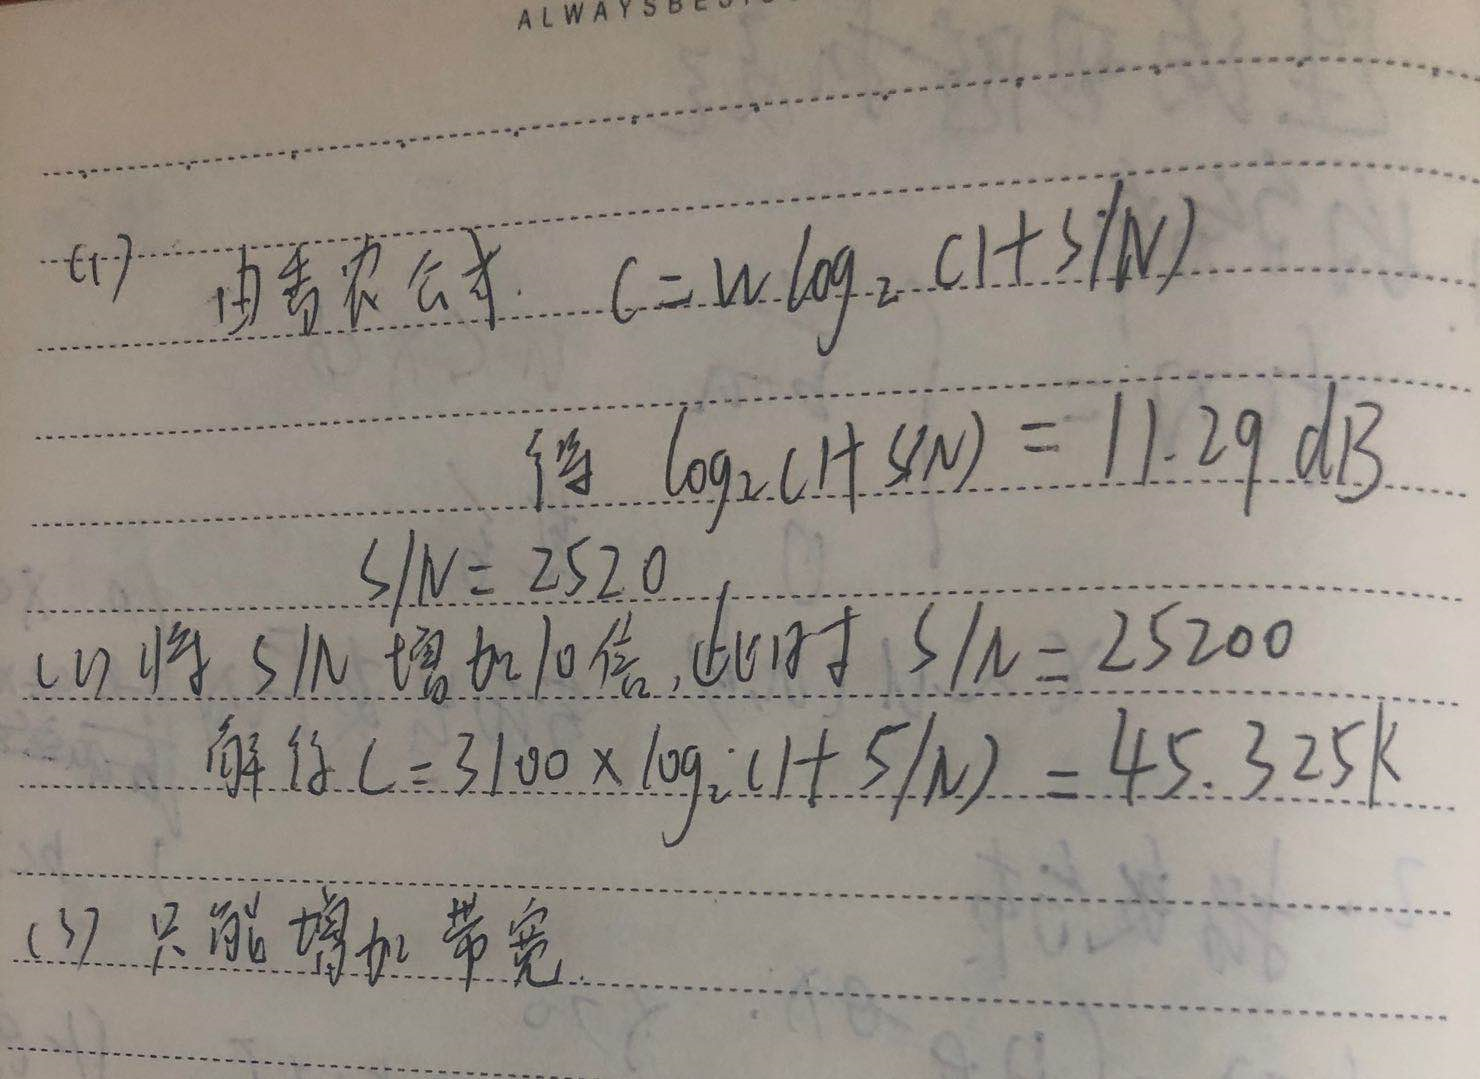 ALWAYSBE
(1) 由香农公式. C=W log₂ (1+S/N)
得 log₂(1+S/N) = 11.29 dB
S/N= 2520
(2) 将 S/N 增加10倍,此时 S/N=25200
解得 C=3100×log₂(1+S/N) =45.325K
(3) 只能增加带宽.